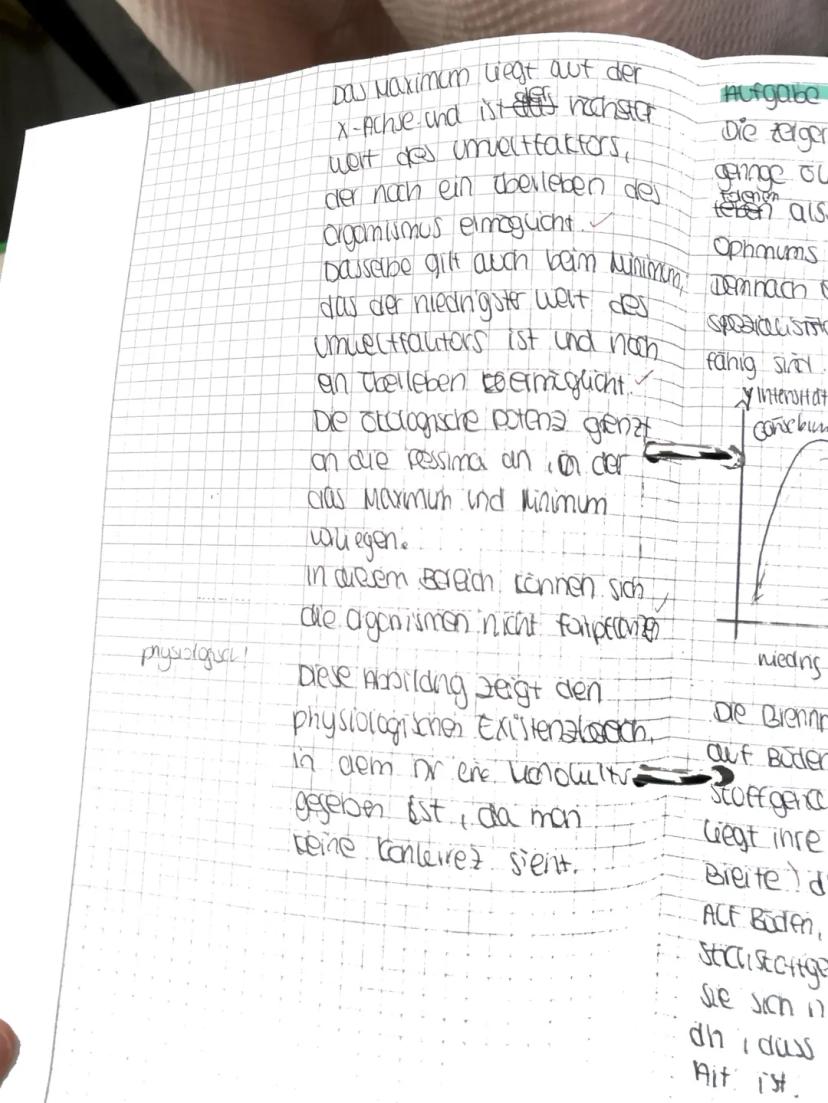 Das Maximum liegt auf der
X-Achse und ist der höchster
Wert des Umweltfaktors,
der noch ein Überleben des
Organismus ermöglicht.
Dasselbe gilt auch beim Minimum,
das der niedrigster Wert des
Umweltfaktors ist und noch
ein Überleben ermöglicht.
Die ökologische Potenz grenzt
an die Pessima an, in der
das Maximum und Minimum
vorliegen.
In diesem Bereich können sich
die Organismen nicht fortpflanzen
physiologisch!
Diese Abbildung zeigt den
physiologischen Existenzbereich,
in dem nr eine Monokultur
gegeben ist, da man
keine Konkurrez sieht.
Aufgabe
Die
geringe
als
Optimums
Demnach
fähig sind.
Intensität
niedrig
Die Brenn
auf Böden
liegt ihre
Breite
Auf Böden,
sie sich
dh, dass
Art ist.